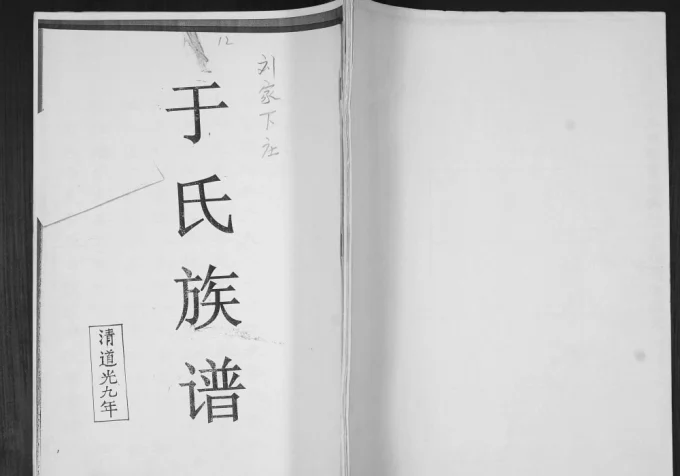 12
刘家下庄
于氏族谱
清道光九年